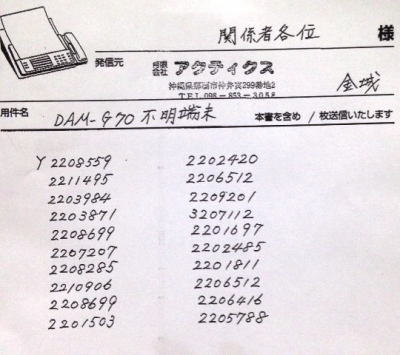 関係者各位 様
発信元 有限会社 アクティクス
沖縄県那覇市仲井真299番地2
TEL 098-853-3058
金城
用件名 DAM-G70 不明端末 本書を含め 1枚送信いたします
Y 2208559 2202420
2211495 2206512
2203984 2209201
2203871 3207112
2208699 2201697
2207207 2202485
2208285 2201811
2210906 2206512
2208699 2206416
2201503 2205788